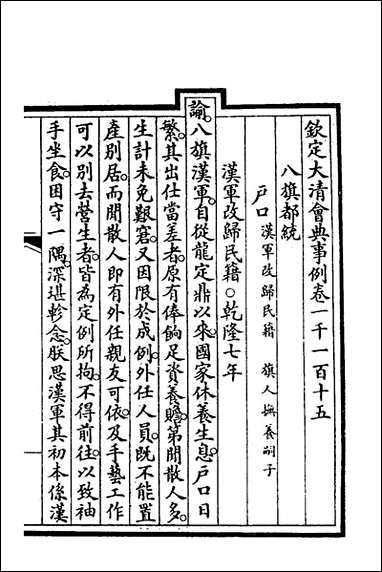 欽定大清會典事例卷一千一百十五
八旗都統
戶口 漢軍改歸民籍 旗人撫養嗣子
漢軍改歸民籍○乾隆七年
諭八旗漢軍。自從龍定鼎以來。國家休養生息。戶口日
繁。其出仕當差者。原有俸餉足資養贍。第閒散人多。
生計未免艱窘。又因限於成例。外任人員。既不能置
產別居。而閒散人即有外任親友可依。及手藝工作
可以別去營生者。皆為定例所拘。不得前往。以致袖
手坐食。困守一隅。深堪軫念。朕思漢軍其初本係漢